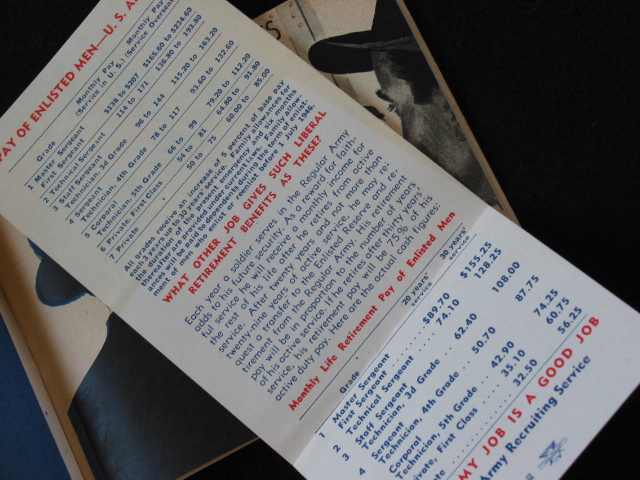 PAY OF ENLISTED MEN—U. S. A
Grade
Monthly Pay
(Service in U. S.)
Monthly Pay
(Service Overseas
1 Master Sergeant
First Sergeant $138 to $207 $165.60 to $234.60
2 Technical Sergeant 114 to 171 136.80 to 193.80
3 Staff Sergeant
Technician, 3d Grade 96 to 144 115.20 to 163.20
4 Sergeant
Technician, 4th Grade 78 to 117 93.60 to 122.60
5 Corporal
Technician, 5th Grade 66 to 99 79.20 to 112.20
6 Private, First Class 54 to 81 64.80 to 91.80
7 Private 50 to 75 60.00 to 85.00
All grades receive an increase of 5 percent of base pay
each 3 years up to 30 years' service. Family allowances for
the duration of the present emergency and six months
thereafter are provided
July 1946.
WHAT OTHER JOB GIVES SUCH LIBERAL
RETIREMENT BENEFITS AS THESE?
Each year a soldier serves in the Regular Army
adds to his future security. As a reward for faith-
ful service he will receive a monthly income for
the rest of his life if he retires from active
service. After twenty years and not more than
twenty-nine years of active service, he may re-
quest a transfer to the Enlisted Reserve and re-
tirement from the Regular Army. His retirement
pay will be in proportion to the number of years
of his active service. If he retires after thirty years'
service, his retirement pay will be 75% of his
active duty pay. Here are the actual cash figures:
Monthly Life Retirement Pay of Enlisted Men
Grade
20 years'
service
30 years'
service
1 Master Sergeant
First Sergeant $89.70 $155.25
2 Technical Sergeant 74.10 128.25
3 Staff Sergeant
Technician, 3d Grade 62.40 108.00
4 Sergeant
Technician, 4th Grade 50.70 87.75
Corporal
Technician, 5th Grade 42.90 74.25
Private, First Class 35.10 60.75
32.50 56.25
MY JOB IS A GOOD JOB
Army Recruiting Service